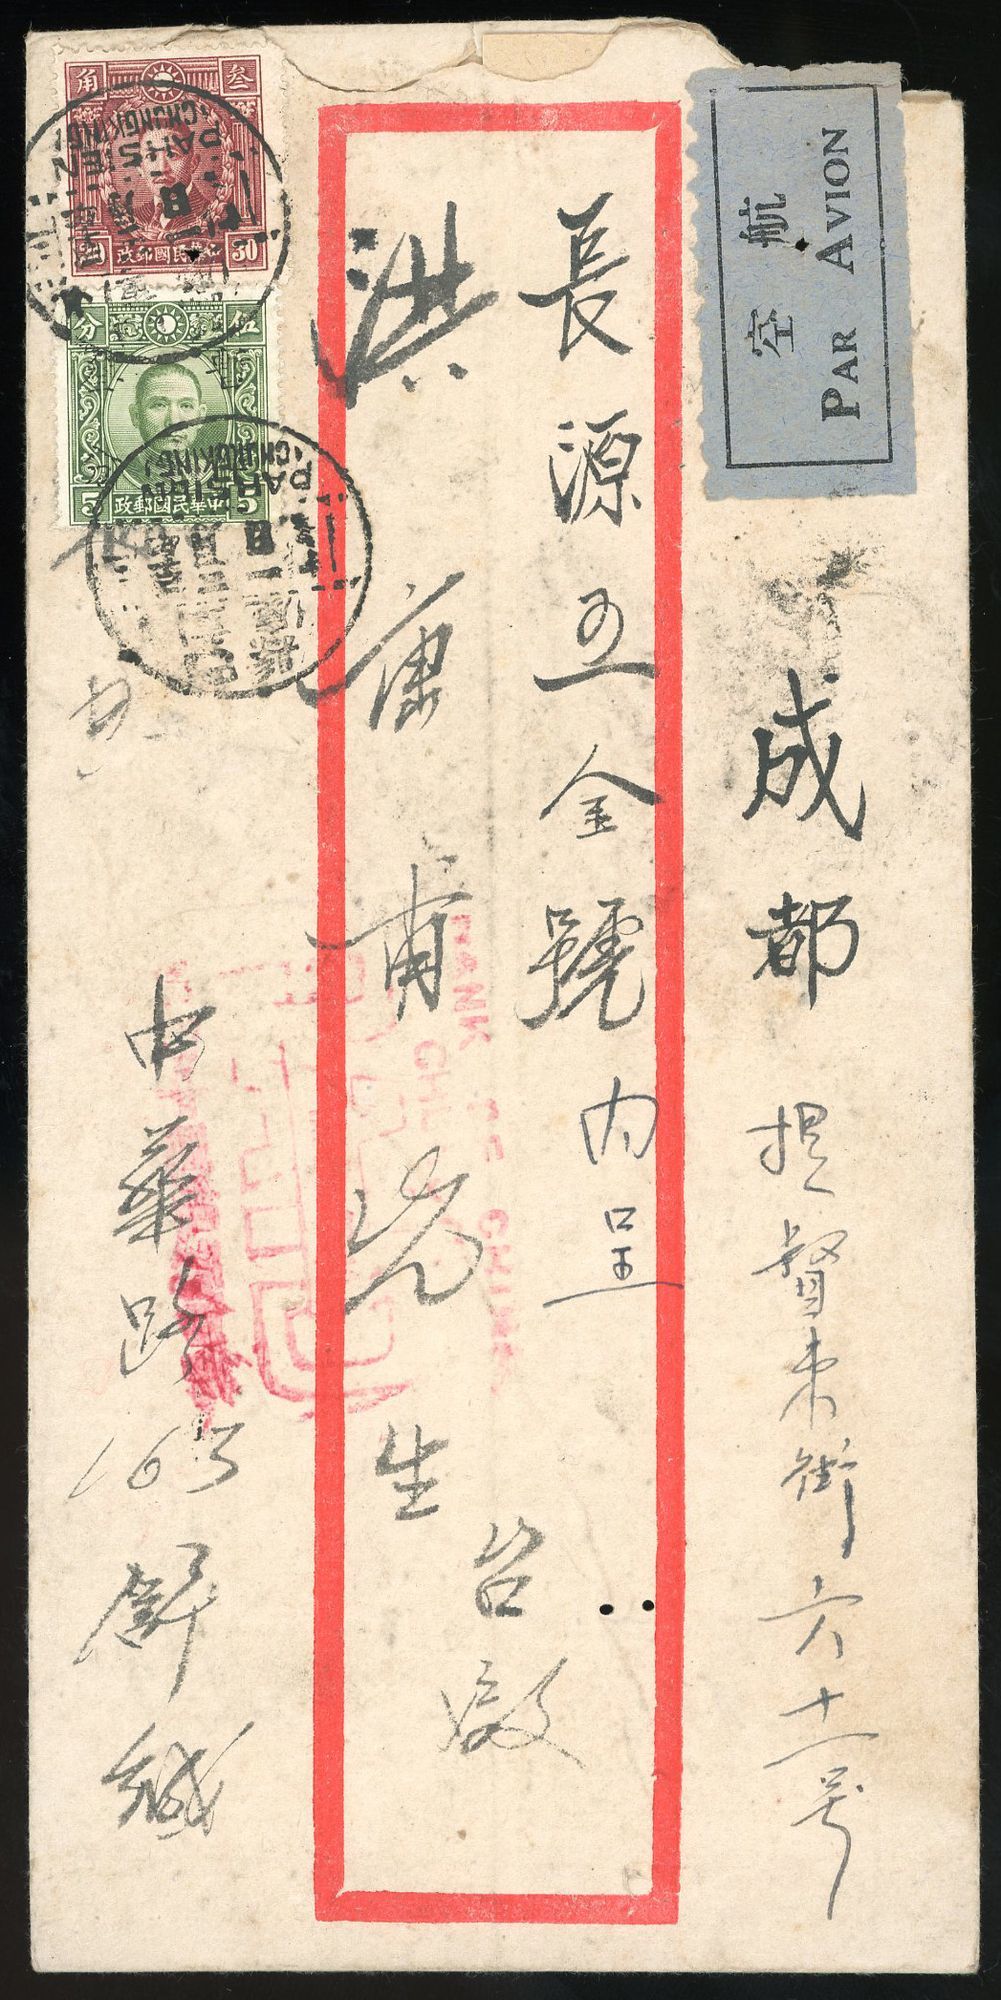 航空
PAR AVION
成都 提督東街六十一號
長源五金號內呈
洪康甫先生 台啟
中華路163 舒緘
叁角
30
中華民國郵政
伍分
5 5
中華民國郵政
PAHSIEN
(CHUNGKING)
PAHSIEN
(CHUNGKING)
BANK OF CHINA